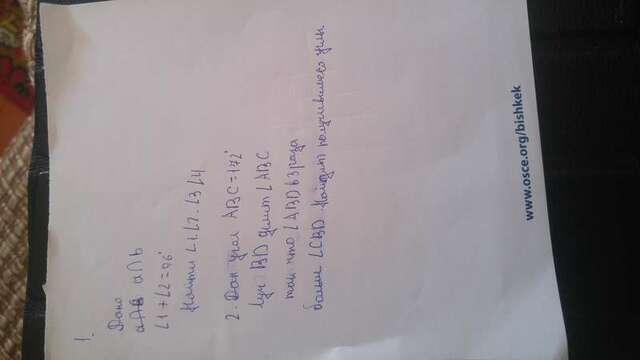 1.
Дано
a∩b
∠1+∠2=96°
Найти ∠1.∠2.∠3 ∠4
2. Дан угол ABC=172°
луч BD делит ∠ABC
так что ∠ABD в 3 раза
больше ∠CBD Найдите получившиеся углы
www.osce.org/bishkek